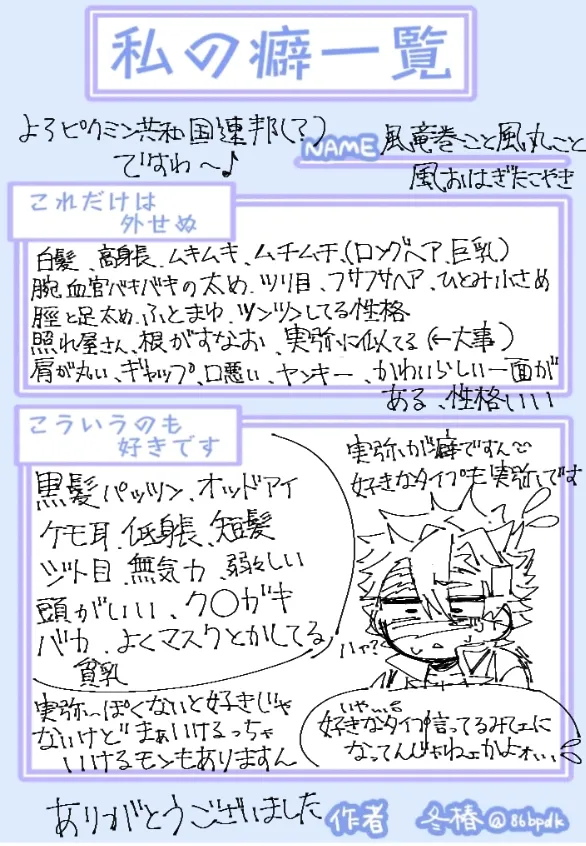 私の癖一覧
よろピクミン共和国連邦(?)
ですわ〜♪
NAME 風竜巻こと風丸こと
風おはぎたこやき
これだけは
外せぬ
白髪、高身長、ムキムキ、ムチムチ、(ロングヘア、巨乳)
腕、血管バキバキの太め、ツリ目、フサフサヘア、ひとみ小さめ
脛と足太め、ふとまゆ、ツンツンしてる性格
照れ屋さん、根がすなお、実弥に似てる(←大事)
肩が丸い、ギャップ、口悪い、ヤンキー、かわいらしい一面が
ある、性格いい
こういうのも
好きです
黒髪パッツン、オッドアイ
ケモ耳、低身長、短髪
ジト目、無気力、弱々しい
頭がいい、ク〇ガキ
バカ、よくマスクとかしてる
貧乳
実弥〜ぽくないと好きじゃ
ないけどまぁいけるっちゃ
いけるモンもありますん
実弥が癖ですん
好きなタイプも実弥です
ハァ?
いやいや
好きなタイプ言ってるみてェに
なってんじゃねェかよォ、、、
ありがとうございました
作者 冬椿@86bpdk